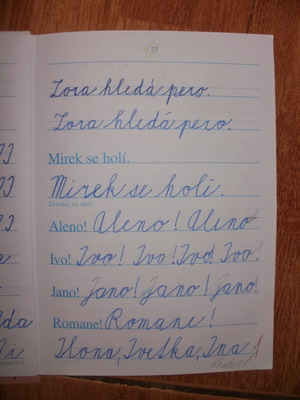 Zora hledá pero.
Zora hledá pero.
Mirek se holí.
Mirek se holí.
Zavolej na děti!
Aleno! Aleno! Aleno
Ivo! Ivo! Ivo! Ivo!
Jano! Jano! Jano! Jano!
Romane! Romane!
Ilona, Ivetka, Ina